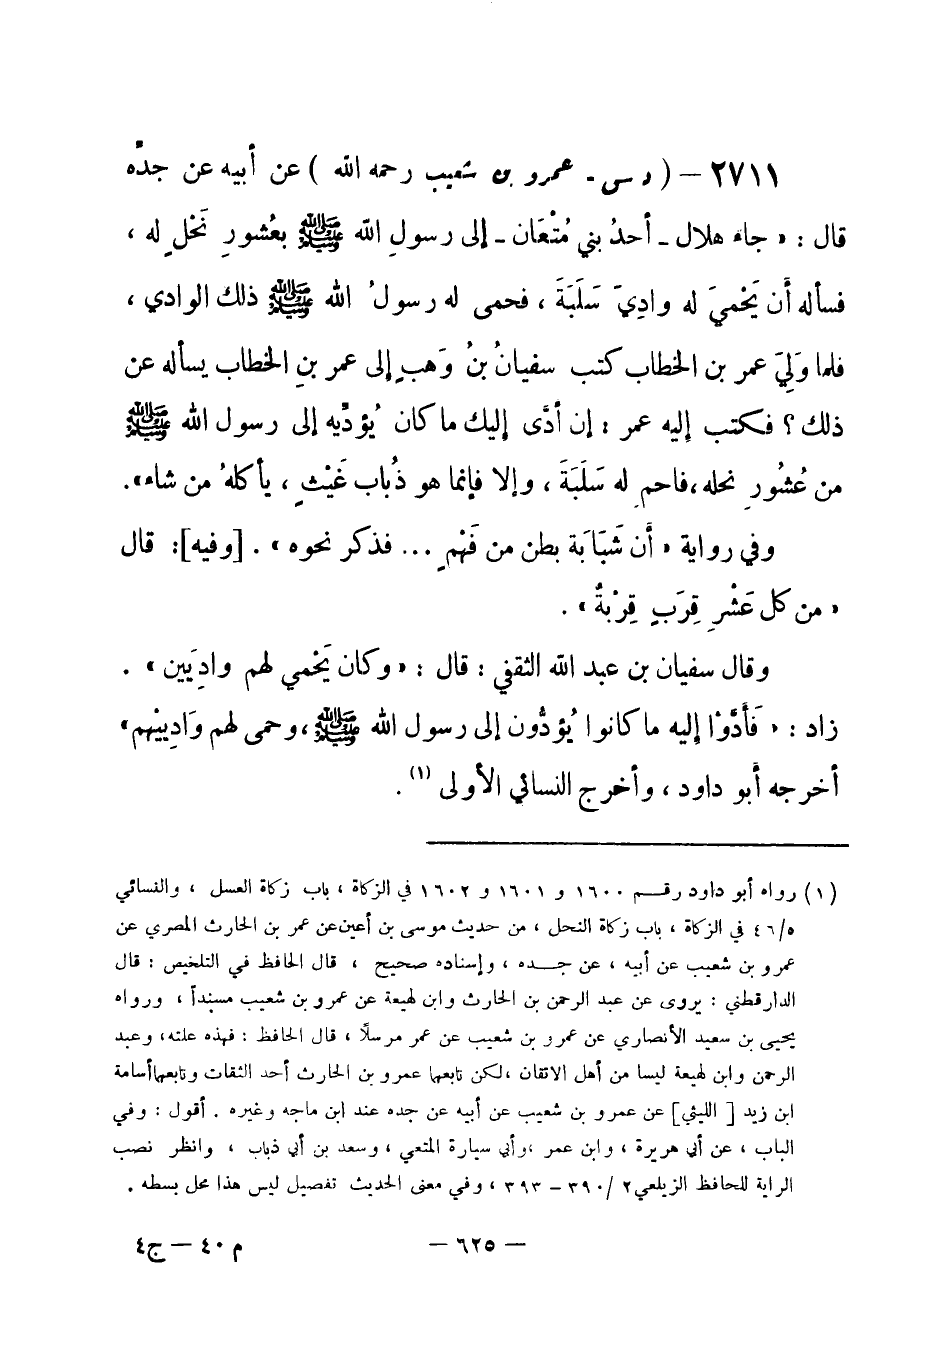 ٢٧١١ – ( د س - عمرو بن شعيب رحمه الله ) عن أبيه عن جدّه
قال : « جاء هلال - أحدُ بني مُتْعَان - إلى رسولِ الله ﷺ بعُشورِ نَحْلٍ له ،
فسأله أن يَحْميَ له وادِيَ سَلَبَةَ ، فحمى له رسولُ الله ﷺ ذلك الوادي ،
فلما وَلِيَ عمر بن الخطاب كتب سفيانُ بنُ وَهبٍ إلى عمر بنِ الخطاب يسأله عن
ذلك ؟ فكتب إليه عمر : إن أدَّى إليك ما كان يُؤدِّيه إلى رسول الله ﷺ
من عُشُورِ نحله ،فاحمِ له سَلَبَةَ ، وإلا فإنما هو ذُباب غَيْثٍ ، يأكلهُ من شاء».
وفي رواية « أن شَبَابَة بطن من فَهْمٍ ... فذكر نحوه » . [وفيه]: قال
« من كل عَشْرِ قِرَبٍ قِرْبةٌ » .
وقال سفيان بن عبد الله الثقفي : قال : « وكان يَحْمي لهم وادِيَين » .
زاد : « فَأَدَّوْا إليه ما كانوا يُؤدُّون إلى رسول الله ﷺ ،وحمى لهم وَادِيَيْهم»
أخرجه أبو داود ، وأخرج النسائي الأولى (١) .
(١) رواه أبو داود رقــم ١٦٠٠ و ١٦٠١ و ١٦٠٢ في الزكاة ، باب زكاة العسل ، والنسائي
٥/٤٦ في الزكاة ، باب زكاة النحل ، من حديث موسى بن أعين عن عمر بن الحارث المصري عن
عمرو بن شعيب عن أبيه ، عن جــده ، وإسناده صحيح ، قال الحافظ في التلخيص : قال
الدارقطني : يروى عن عبد الرحمن بن الحارث وابن لهيعة عن عمرو بن شعيب مسنداً ، ورواه
يحيى بن سعيد الأنصاري عن عمرو بن شعيب عن عمر مرسلًا ، قال الحافظ : فهذه علته، وعبد
الرحمن وابن لهيعة ليسا من أهل الاتقان ،لكن تابعهما عمرو بن الحارث أحد الثقات وتابعهما أسامة
ابن زيد [ الليثي] عن عمرو بن شعيب عن أبيه عن جده عند ابن ماجه وغيره . أقول : وفي
الباب ، عن أبي هريرة ، وابن عمر ،وأبي سيارة المتعي ، وسعد بن أبي ذباب ، وانظر نصب
الراية للحافظ الزيلعي٢ /٣٩٠ – ٣٩٣ ، وفي معنى الحديث تفصيل ليس هذا محل بسطه .
– ٦٢٥ –
م ٤٠ – ج٤